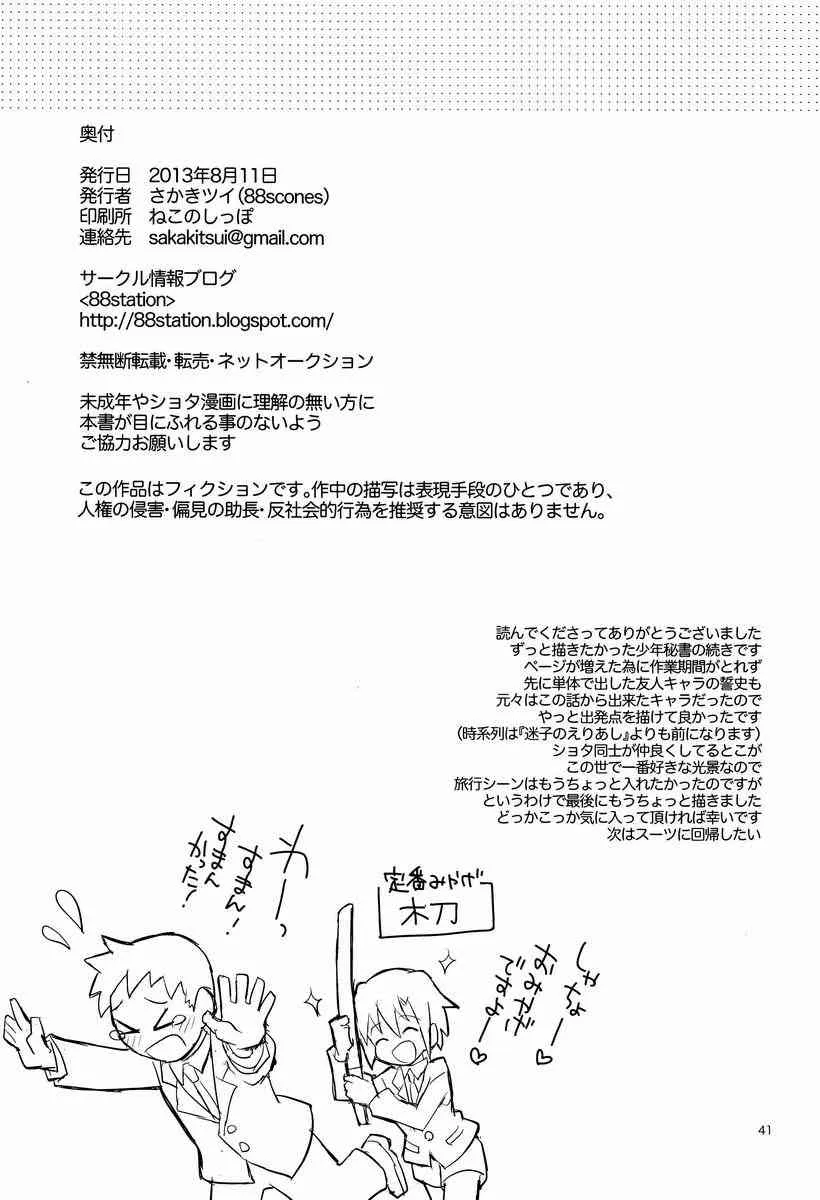 奥付
発行日　2013年8月11日
発行者　さかきツイ(88scones)
印刷所　ねこのしっぽ
連絡先　sakakitsui@gmail.com
サークル情報ブログ
<88station>
http://88station.blogspot.com/
禁無断転載・転売・ネットオークション
未成年やショタ漫画に理解の無い方に
本書が目にふれる事のないよう
ご協力お願いします
この作品はフィクションです。作中の描写は表現手段のひとつであり、
人権の侵害・偏見の助長・反社会的行為を推奨する意図はありません。
読んでくださってありがとうございました
ずっと描きたかった少年秘書の続きです
ページが増えた為に作業期間がとれず
先に単体で出した友人キャラの誓史も
元々はこの話から出来たキャラだったので
やっと出発点を描けて良かったです
(時系列は『迷子のえりあし』よりも前になります)
ショタ同士が仲良くしてるとこが
この世で一番好きな光景なので
旅行シーンはもうちょっと入れたかったのですが
というわけで最後にもうちょっと描きました
どっかこっか気に入って頂ければ幸いです
次はスーツに回帰したい
わーっ
すまん!
すまん
かった!
定番みやげ
木刀
しゃちょー
おみやげ
ですよー♡
41